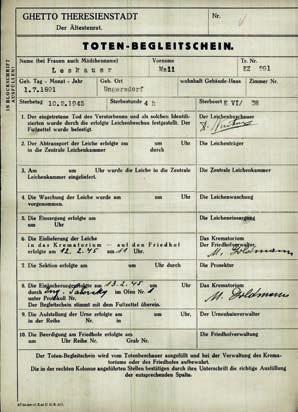 GHETTO THERESIENSTADT
Der Ältestenrat.
Nr.
TOTEN-BEGLEITSCHEIN.
IN BLOCKSCHRIFT AUSFÜLLEN!
Name (bei Frauen auch Mädchenname) Vorname Tr. Nr.
Leskauer Meli EZ 201
Geb. Tag - Monat - Jahr Geb. Ort wohnhaft Gebäude-Haus Zimmer Nr.
1.7.1891 Ungersdorf
Sterbetag 10.2.1945 Sterbestunde 4 h Sterbeort E VI/ 38
1. Der eingetretene Tod des Verstorbenen und als solchen Identifizierten wurde durch die erfolgte Leichenbeschau festgestellt. Der Fußzettel wurde befestigt.
Der Leichenbeschauer
2. Der Abtransport der Leiche erfolgte am um Uhr in die Zentrale Leichenkammer
Die Leichenträger
3. Am um Uhr wurde die Leiche in die Zentrale Leichenkammer eingeliefert.
Die Zentrale Leichenkammer
4. Die Waschung der Leiche wurde am um vorgenommen.
Die Leichenwaschung
5. Die Einsargung erfolgte am um Uhr
Die Leicheneinsargung
6. Die Einlieferung der Leiche in das Krematorium - auf den Friedhof erfolgte am 12.2.45 um 11 Uhr.
Das Krematorium
Der Friedhofverwalter
M. Goldmann
7. Die Sektion erfolgte am um Uhr durch
Der Prosektor
8. Die Einäscherung erfolgte am 13.2.45 um Uhr durch im Ofen Nr. unter Protokoll Nr.
Der Begleitschein stimmt mit dem Fußzettel überein.
Das Krematorium
M. Goldmann
9. Die Aufstellung der Urne erfolgte am um Uhr in der Reihe Nr. in
Der Urnenhainverwalter
10. Die Beerdigung am Friedhofe erfolgte am um Uhr in der Reihe Nr. Grab Nr.
Die Friedhofverwaltung
Der Toten-Begleitschein wird vom Totenbeschauer ausgefüllt und bei der Verwaltung des Krematoriums oder des Friedhofes aufbewahrt.
Die in der rechten Kolonne angeführten Stellen bestätigen durch ihre Unterschrift die richtige Ausfüllung der entsprechenden Spalte.